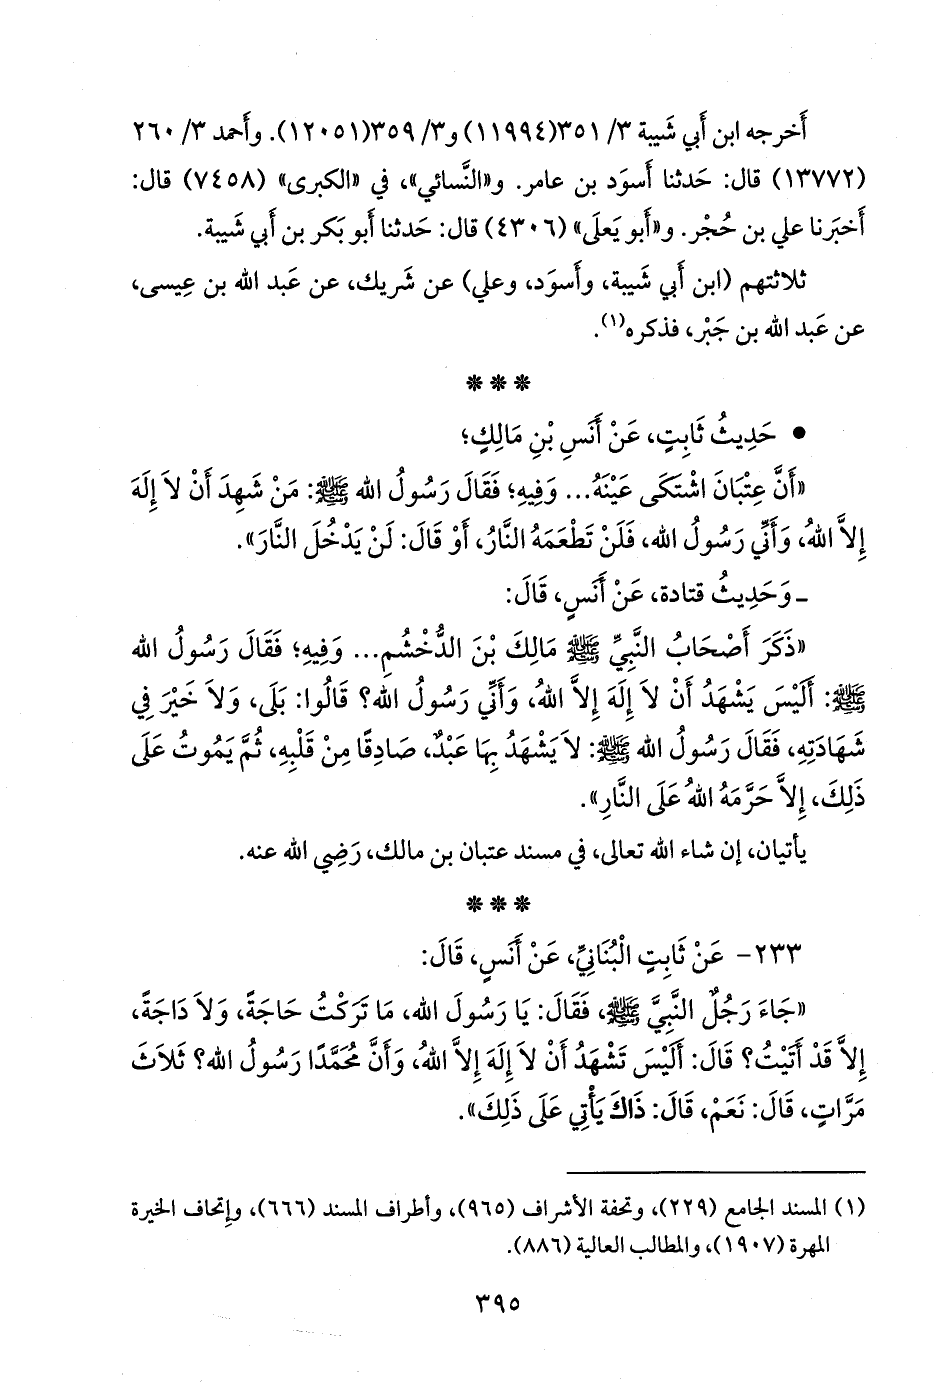 أَخرجه ابن أَبي شَيبة ٣/ ٣٥١(١١٩٩٤) و٣/ ٣٥٩(١٢٠٥١). وأَحمد ٣/ ٢٦٠
(١٣٧٧٢) قال: حَدثنا أَسوَد بن عامر. و«النَّسائي»، في «الكبرى» (٧٤٥٨) قال:
أَخبَرنا علي بن حُجْر. و«أَبو يَعلَى» (٤٣٠٦) قال: حَدثنا أَبو بَكر بن أَبي شَيبة.
ثلاثتهم (ابن أَبي شَيبة، وأَسوَد، وعلي) عن شَريك، عن عَبد الله بن عِيسى،
عن عَبد الله بن جَبْر، فذكره(١).
* * *
• حَدِيثُ ثَابِتٍ، عَنْ أَنَسِ بْنِ مَالِكٍ؛
«أَنَّ عِتْبَانَ اشْتَكَى عَيْنَهُ... وَفِيهِ؛ فَقَالَ رَسُولُ الله ﷺ: مَنْ شَهِدَ أَنْ لاَ إِلَهَ
إِلاَّ اللهُ، وَأَنِّي رَسُولُ الله، فَلَنْ تَطْعَمَهُ النَّارُ، أَوْ قَالَ: لَنْ يَدْخُلَ النَّارَ».
ـ وَحَدِيثُ قتادة، عَنْ أَنَسٍ، قَالَ:
«ذَكَرَ أَصْحَابُ النَّبِيِّ ﷺ مَالِكَ بْنَ الدُّخْشُمِ... وَفِيهِ؛ فَقَالَ رَسُولُ الله
ﷺ: أَلَيْسَ يَشْهَدُ أَنْ لاَ إِلَهَ إِلاَّ اللهُ، وَأَنِّي رَسُولُ الله؟ قَالُوا: بَلَى، وَلاَ خَيْرَ فِي
شَهَادَتِهِ، فَقَالَ رَسُولُ الله ﷺ: لاَ يَشْهَدُ بِهَا عَبْدٌ، صَادِقًا مِنْ قَلْبِهِ، ثُمَّ يَمُوتُ عَلَى
ذَلِكَ، إِلاَّ حَرَّمَهُ اللهُ عَلَى النَّارِ».
يأتيان، إن شاء الله تعالى، في مسند عتبان بن مالك، رَضِي الله عنه.
* * *
٢٣٣- عَنْ ثَابِتٍ الْبُنَانِيِّ، عَنْ أَنَسٍ، قَالَ:
«جَاءَ رَجُلٌ النَّبِيَّ ﷺ، فَقَالَ: يَا رَسُولَ الله، مَا تَرَكْتُ حَاجَةً، وَلاَ دَاجَةً،
إِلاَّ قَدْ أَتَيْتُ؟ قَالَ: أَلَيْسَ تَشْهَدُ أَنْ لاَ إِلَهَ إِلاَّ اللهُ، وَأَنَّ مُحَمَّدًا رَسُولُ الله؟ ثَلاَثَ
مَرَّاتٍ، قَالَ: نَعَمْ، قَالَ: ذَاكَ يَأْتِي عَلَى ذَلِكَ».
(١) المسند الجامع (٢٢٩)، وتحفة الأشراف (٩٦٥)، وأطراف المسند (٦٦٦)، وإتحاف الخيرة
المهرة (١٩٠٧)، والمطالب العالية (٨٨٦).
٣٩٥